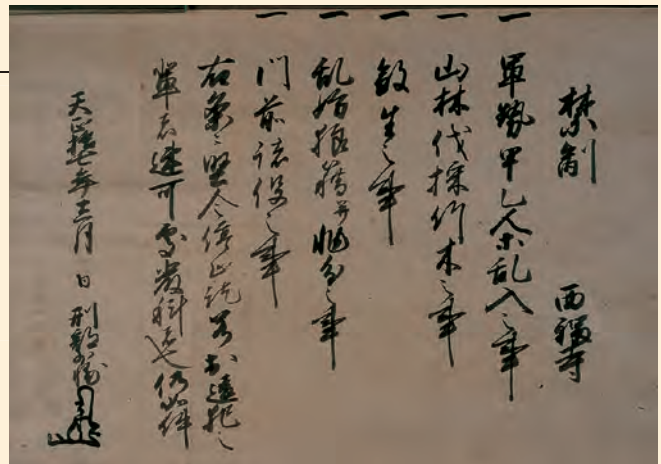 禁制 西福寺
一 軍勢甲乙人等乱入之事
一 山林伐採竹木之事
一 殺生之事
一 乱妨狼藉并非分之事
一 門前諸役之事
右条々堅令停止訖若於違犯之
輩者速可処厳科者也仍如件
天正拾七年十二月 日 刑部少輔